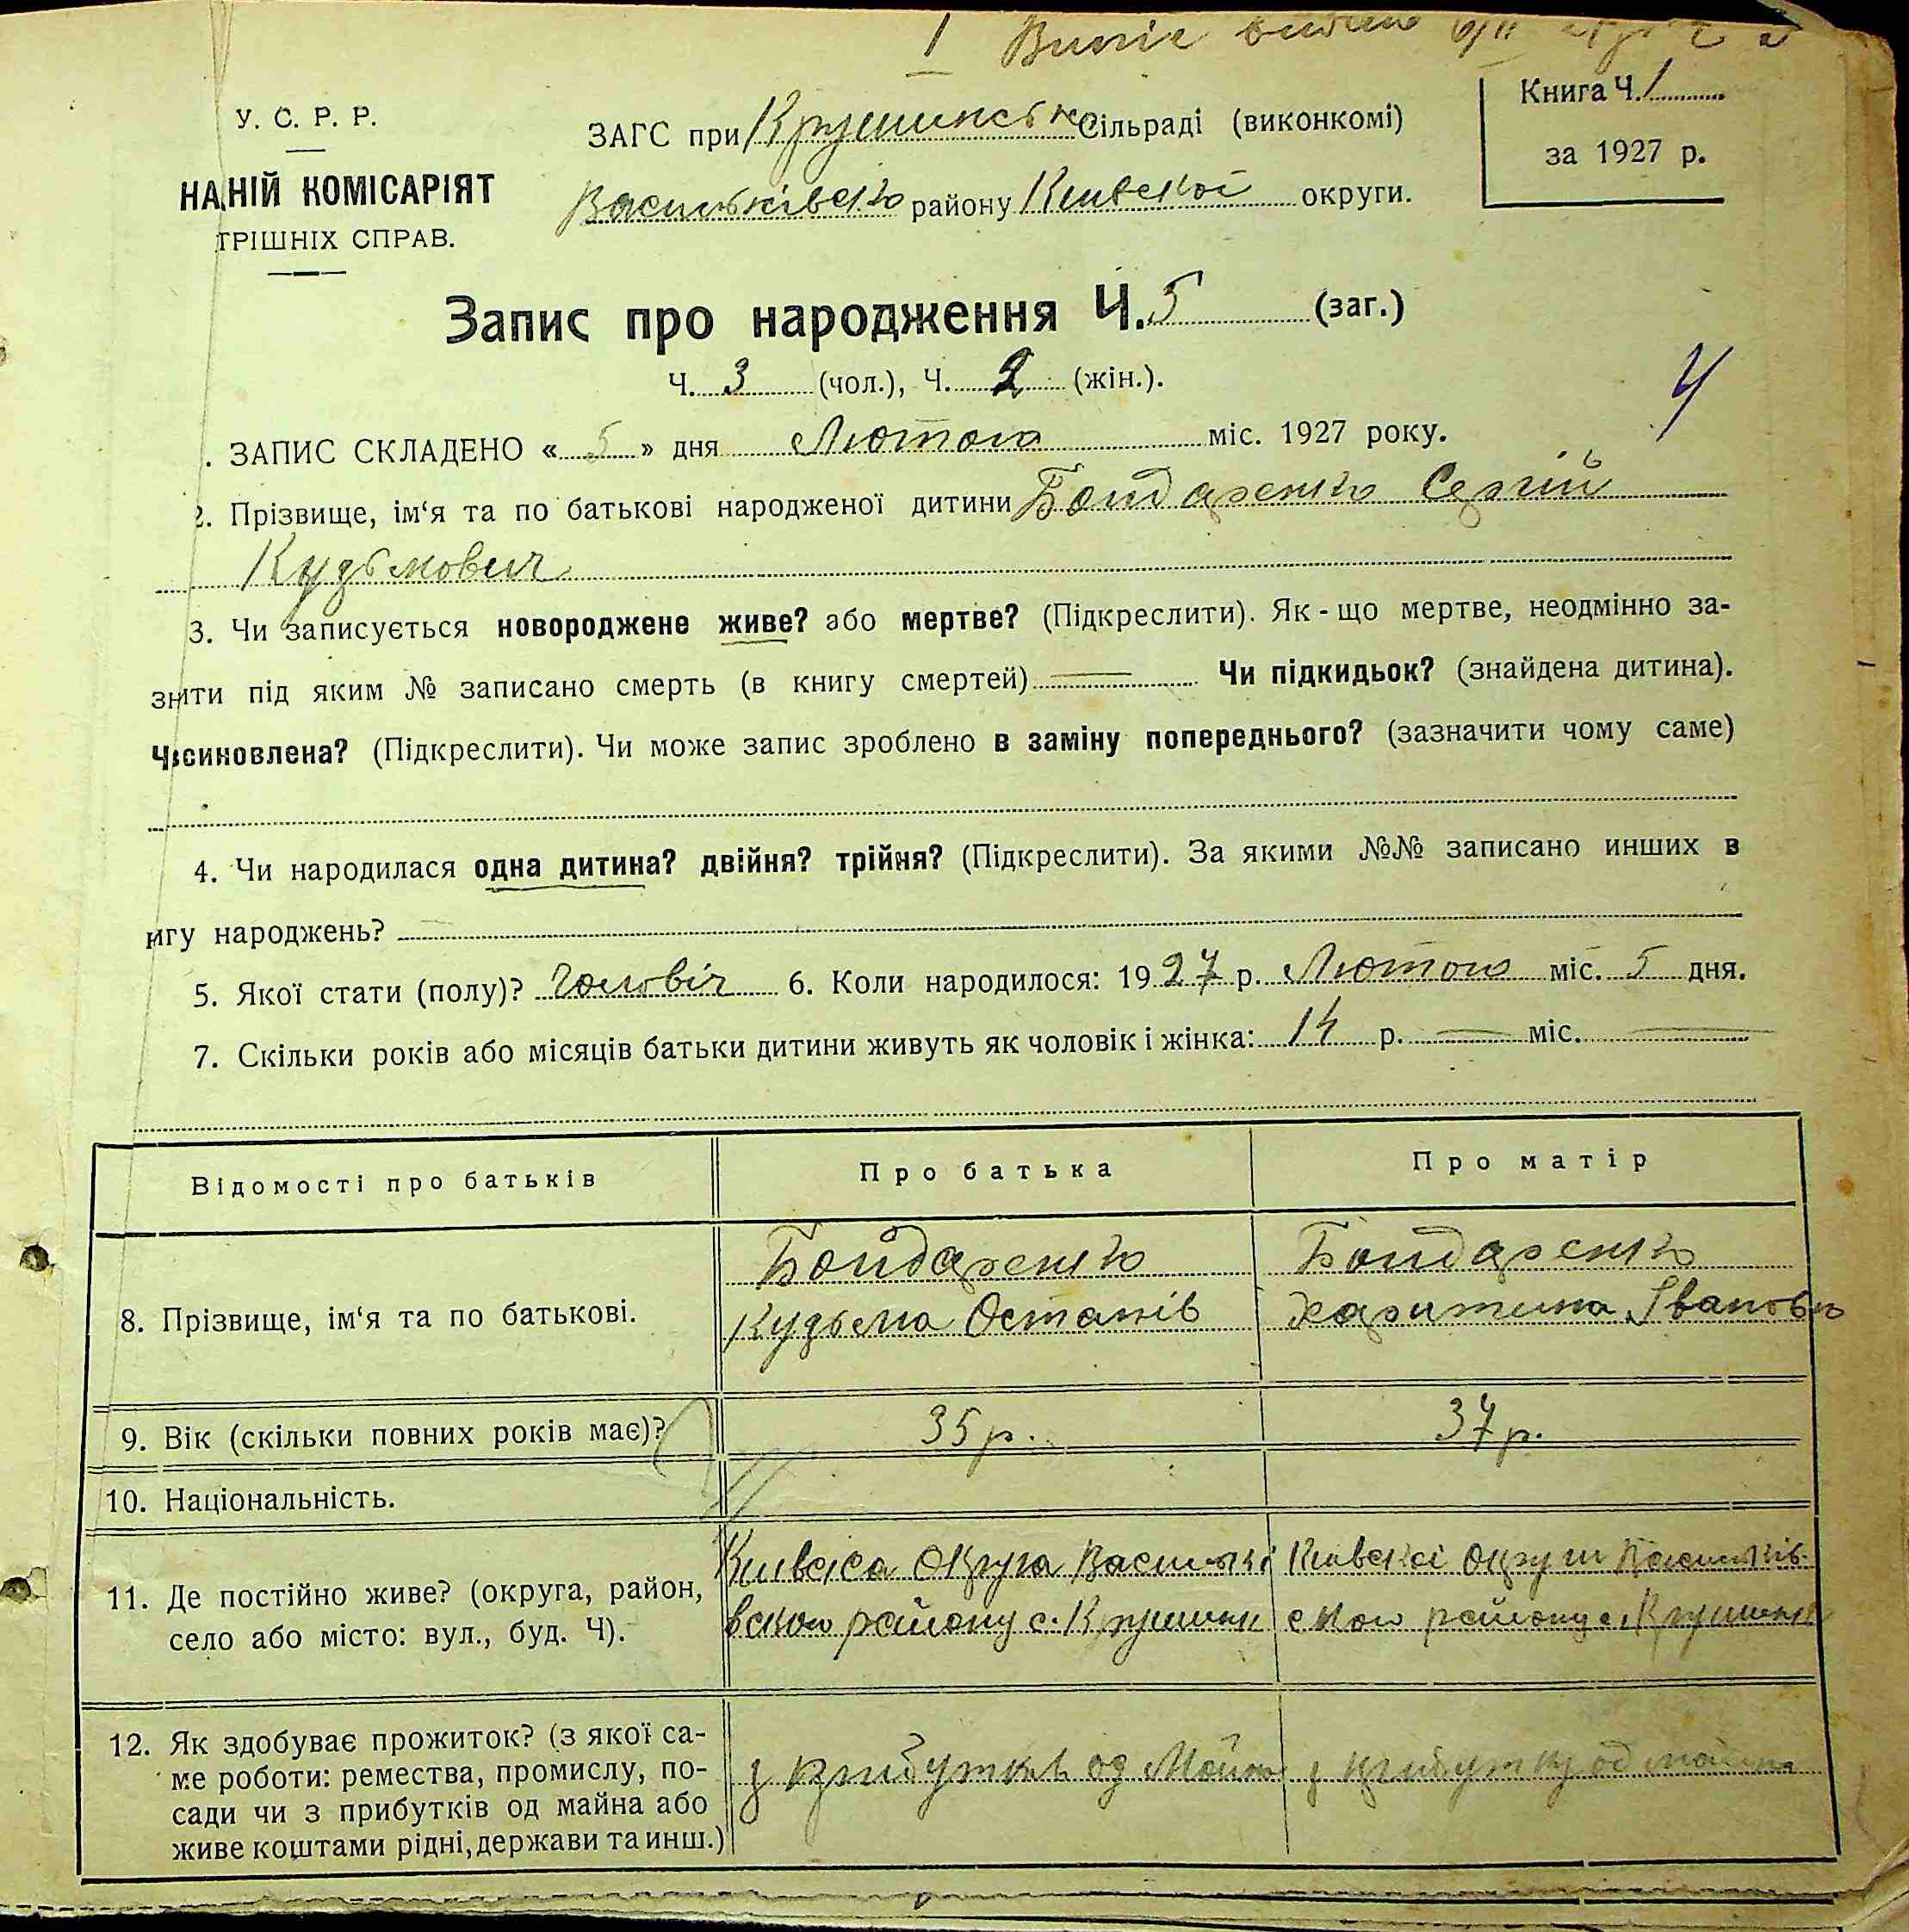 1 Випіс видано
У. С. Р. Р.
НА,НІЙ КОМІСАРІЯТ
ТРІШНІХ СПРАВ.
ЗАГС при Крушинськ Сільраді (виконкомі)
Васильківсько району Київской округи.
Книга Ч. 1
за 1927 р.
Запис про народження Ч. 5 (заг.)
Ч. 3 (чол.), Ч. 2 (жін.).
4
. ЗАПИС СКЛАДЕНО « 5 » дня Лютого міс. 1927 року.
2. Прізвище, ім‘я та по батькові народженої дитини Бондаренко Сергій
Кузьмович
3. Чи записується новороджене живе? або мертве? (Підкреслити). Як-що мертве, неодмінно за-
знити під яким № записано смерть (в книгу смертей) — Чи підкидьок? (знайдена дитина).
Чзсиновлена? (Підкреслити). Чи може запис зроблено в заміну попереднього? (зазначити чому саме)
4. Чи народилася одна дитина? двійня? трійня? (Підкреслити). За якими №№ записано инших в
игу народжень?
5. Якої стати (полу)? Чоловіч 6. Коли народилося: 1927 р. Лютого міс. 5 дня.
7. Скільки років або місяців батьки дитини живуть як чоловік і жінка: 14 р. — міс. —
Відомості про батьків Про батька Про матір
8. Прізвище, ім‘я та по батькові.
Бондаренко
Кузьма Остапів
Бондаренко
Харитина Івановн
9. Вік (скільки повних років має)? 35 р. 37 р.
10. Національність.
11. Де постійно живе? (округа, район,
село або місто: вул., буд. Ч).
Київска Округа Василькі
вского району с. Крушинк
Київскої Округи Васильків-
ского району с. Крушинк
12. Як здобуває прожиток? (з якої са-
ме роботи: ремества, промислу, по-
сади чи з прибутків од майна або
живе коштами рідні, держави та инш.)
з прибутків од Майна
з прибутку од майна